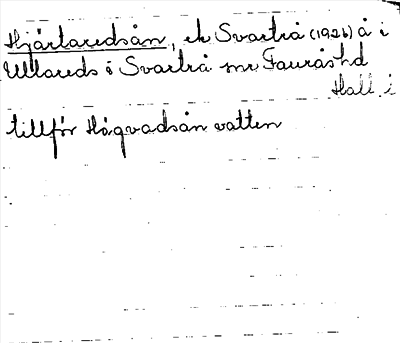 Hjärtaredsån, ek Svartrå (1926) å i
Ullareds o Svartrå snr Faurås hd
Hall. l
tillför Högvadsån vatten